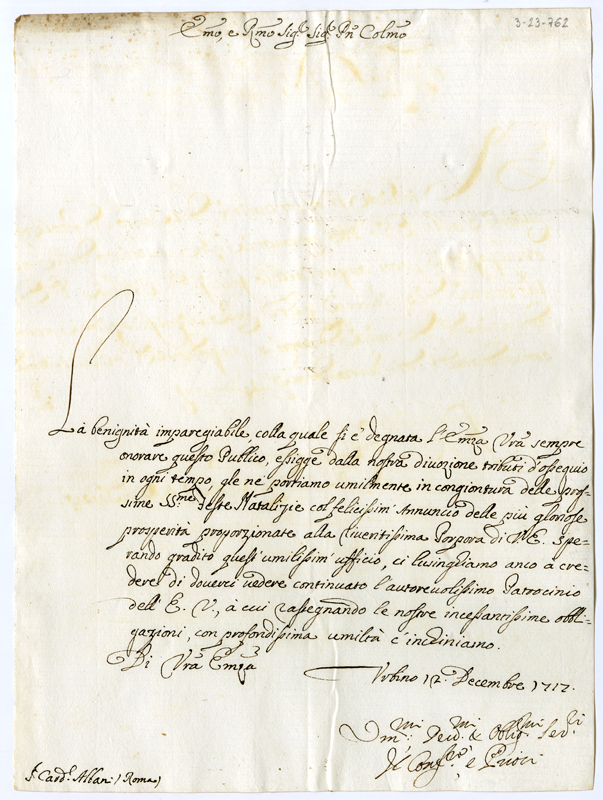 3-23-762
Emo, e Rmo Sigr. Sigr. Pñ Colmo
La benignità impareggiabile, colla quale si è degnata l'Emza Vra sempre
onorare questo Publico, essigge dalla nostra divozione tributi d'ossequio
in ogni tempo, gle ne portiamo umilmente in congiontura delle pros-
sime SS.me feste Natalizie col felicissim' Annuncio delle più gloriose
prosperità proporzionate alla riveritissima Porpora di V. E. Spe-
rando gradito quest' umilissim' ufficio, ci lusinghiamo anco à cre-
dere di doverci vedere continuato l'autorevolissimo Patrocinio
dell' E. V., à cui rassegnando le nostre incessantissime obbli-
gazioni, con profondissima umiltà c'inchiniamo.
Di Vra Emza
Urbino 12. Decembre 1717.
Umi: Devmi. & Obligmi Servi
Il Confre, e Priori
Sr. Cardl. Albani (Roma)